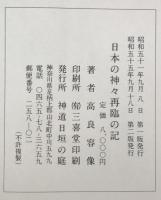 昭和五十一年九月八日 第一版発行
昭和五十五年九月十八日 第二版発行
日本の神々再臨の記
定価 八、〇〇〇円
著者 高良容像
印刷所 ㈲三喜堂印刷
発行所 神道日垣の庭
神奈川県足柄上郡山北町中川五九九
電話 〇四六五‐七八‐三六五九
郵便番号 二五八‐〇二
(不許複製)